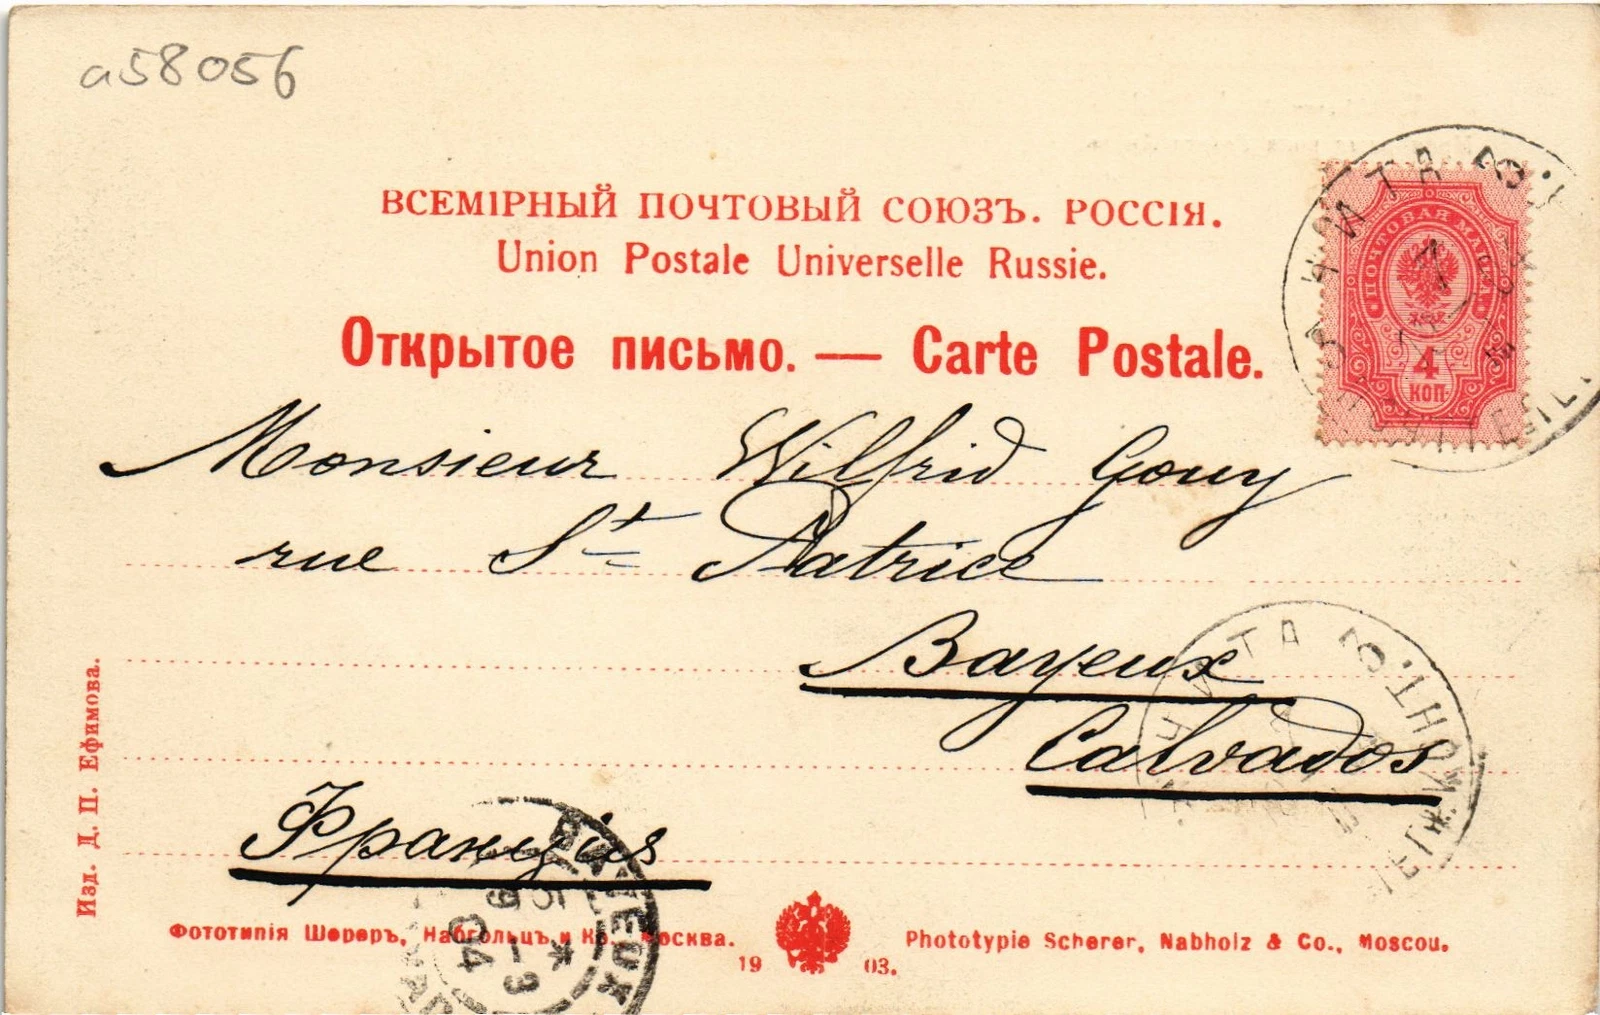 a58056
ВСЕМІРНЫЙ ПОЧТОВЫЙ СОЮЗЪ. РОССІЯ.
Union Postale Universelle Russie.
Открытое письмо. — Carte Postale.
ПОЧТОВАЯ МАРКА
4
КОП.
ЧИТА
Monsieur Wilfrid Gouy
rue St Patrice
Bayeux
Calvados
Францiя
ЧИТА
BAYEUX
9 -3
04
Изд. Д. П. Ефимова.
Фототипія Шереръ, Набгольцъ и Ко. Москва.
1903.
Phototypie Scherer, Nabholz & Co., Moscou.